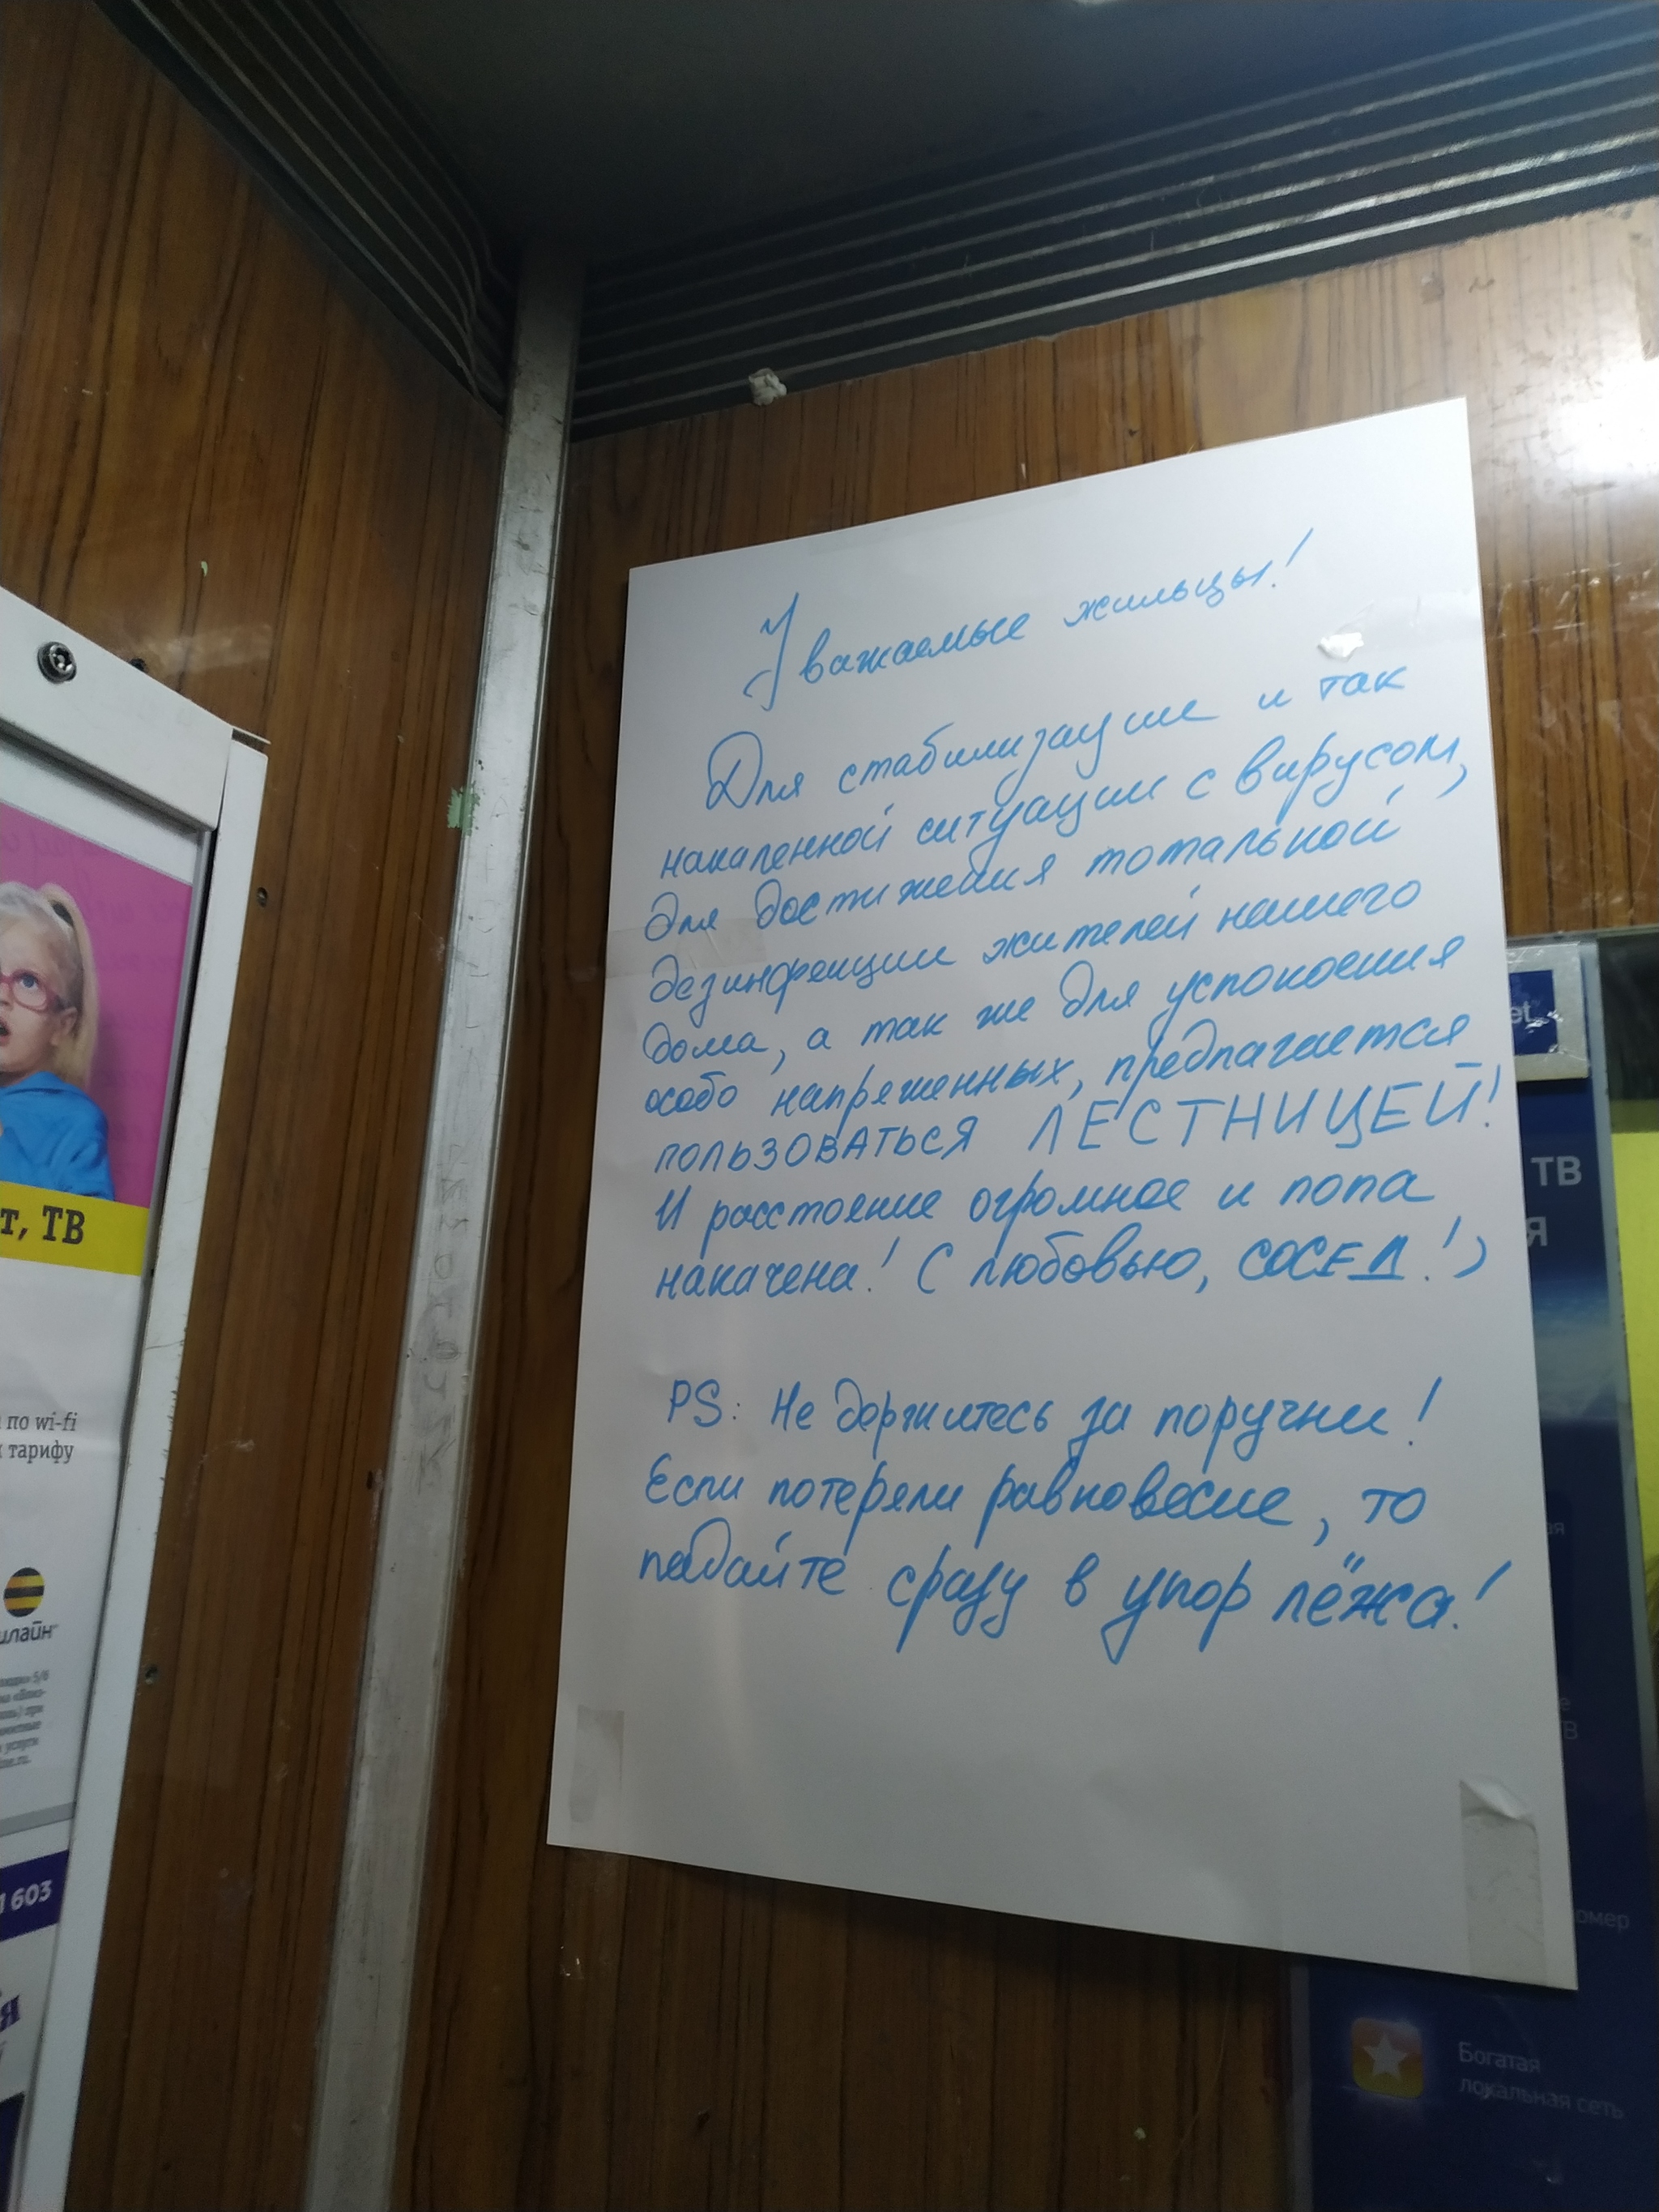 Уважаемые жильцы!
Для стабилизации и так
накаленной ситуации с вирусом,
для достижения тотальной
дезинфекции жителей нашего
дома, а так же для успокоения
особо напряженных, предлагается
ПОЛЬЗОВАТЬСЯ ЛЕСТНИЦЕЙ!
И расстояние огромное и попа
накачена! С любовью, СОСЕД!)
PS: Не держитесь за поручни!
Если потеряли равновесие, то
падайте сразу в упор лёжа!
т, ТВ
по wi-fi
тарифу
илайн
5/6
при
услуги
1 603
я
et
ТВ
Я
ая
е
ТВ
омер
Богатая
локальная сеть